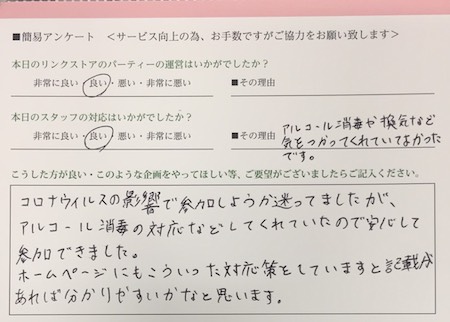 ■簡易アンケート　＜サービス向上の為、お手数ですがご協力をお願い致します＞
本日のリンクストアのパーティーの運営はいかがでしたか？
非常に良い・良い・悪い・非常に悪い　■その理由
本日のスタッフの対応はいかがでしたか？
非常に良い・良い・悪い・非常に悪い　■その理由
アルコール消毒や換気など
気をつかってくれていてよかった
です。
こうした方が良い・このような企画をやってほしい等、ご要望がございましたらご記入ください。
コロナウイルスの影響で参加しようか迷ってましたが、
アルコール消毒の対応などしてくれていたので安心して
参加できました。
ホームページにもこういった対応策をしていますと記載が
あれば分かりやすいかなと思います。